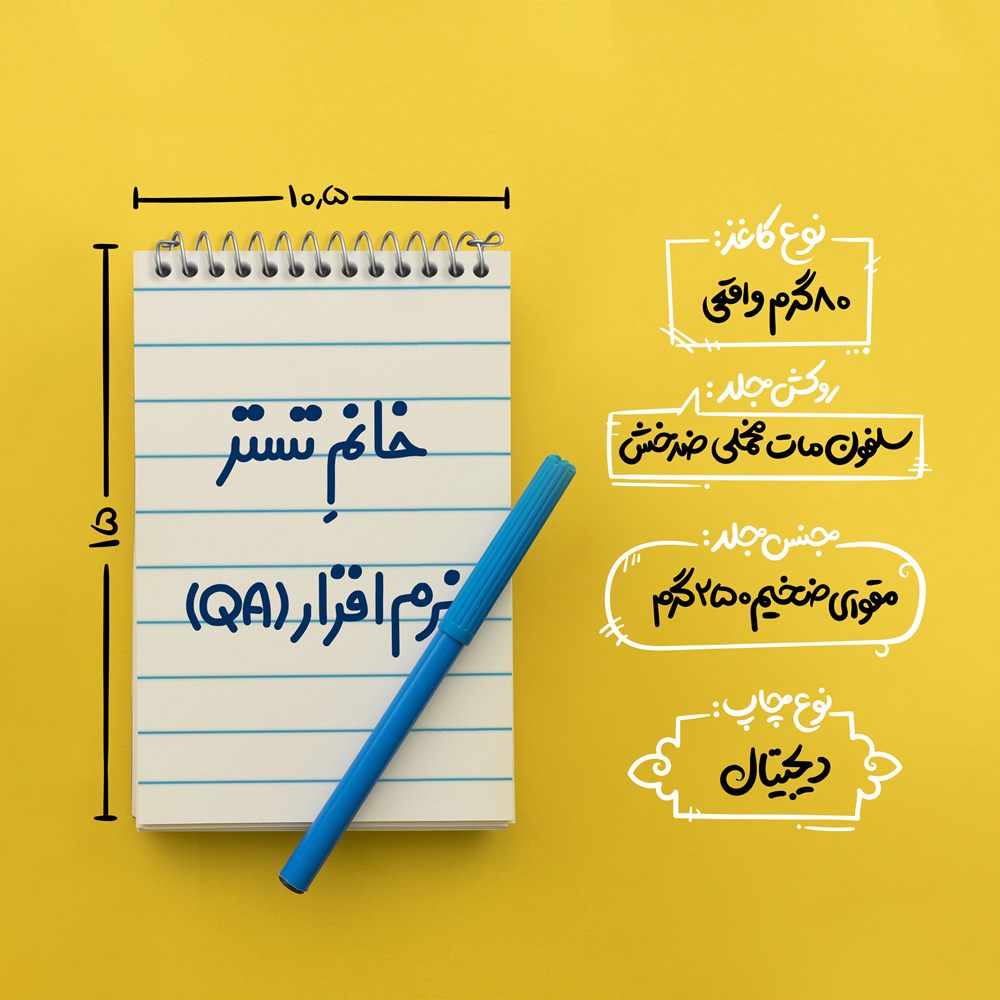 ۱۰٫۵
۱۵
خانمِ تستر
نرم افزار (QA)
نوع کاغذ:
۸۰گرم واقعی
روکش جلد:
سلفون مات مخملی ضدخش
جنس جلد:
مقوای ضخیم ۲۵۰گرم
نوع چاپ:
دیجیتال